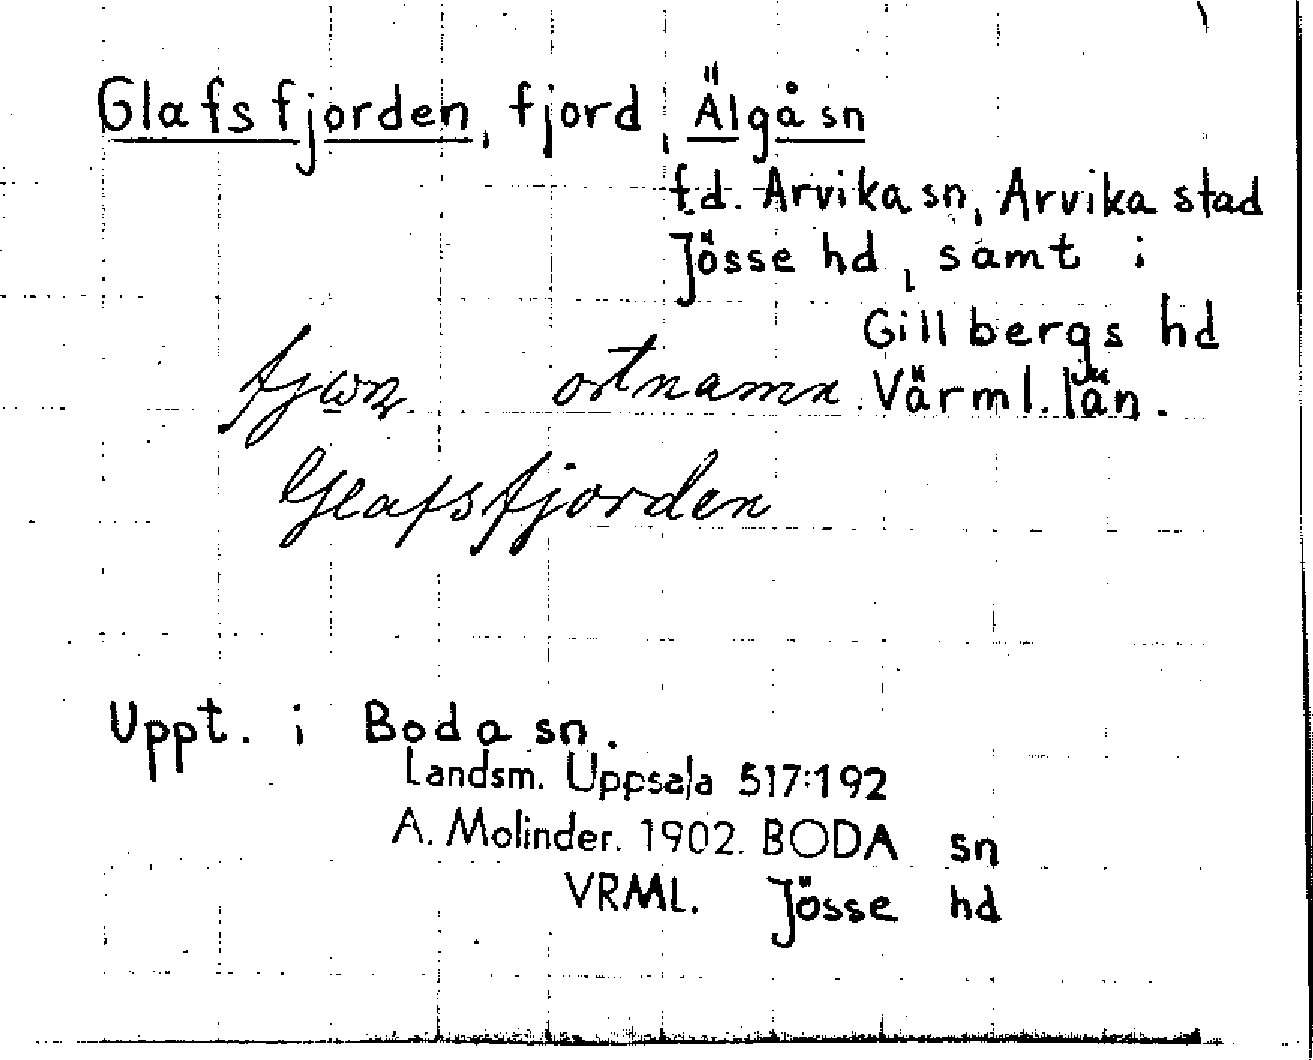 Glafsfjorden, fjord, Älgå sn
f.d. Arvika sn, Arvika stad
Jösse hd, samt i
Gillbergs hd
ortnamn. Värml. län.
Glafsfjorden
Uppt. i Boda sn.
Landsm. Uppsala 517:192
A. Molinder. 1902. BODA sn
VRML. Jösse hd